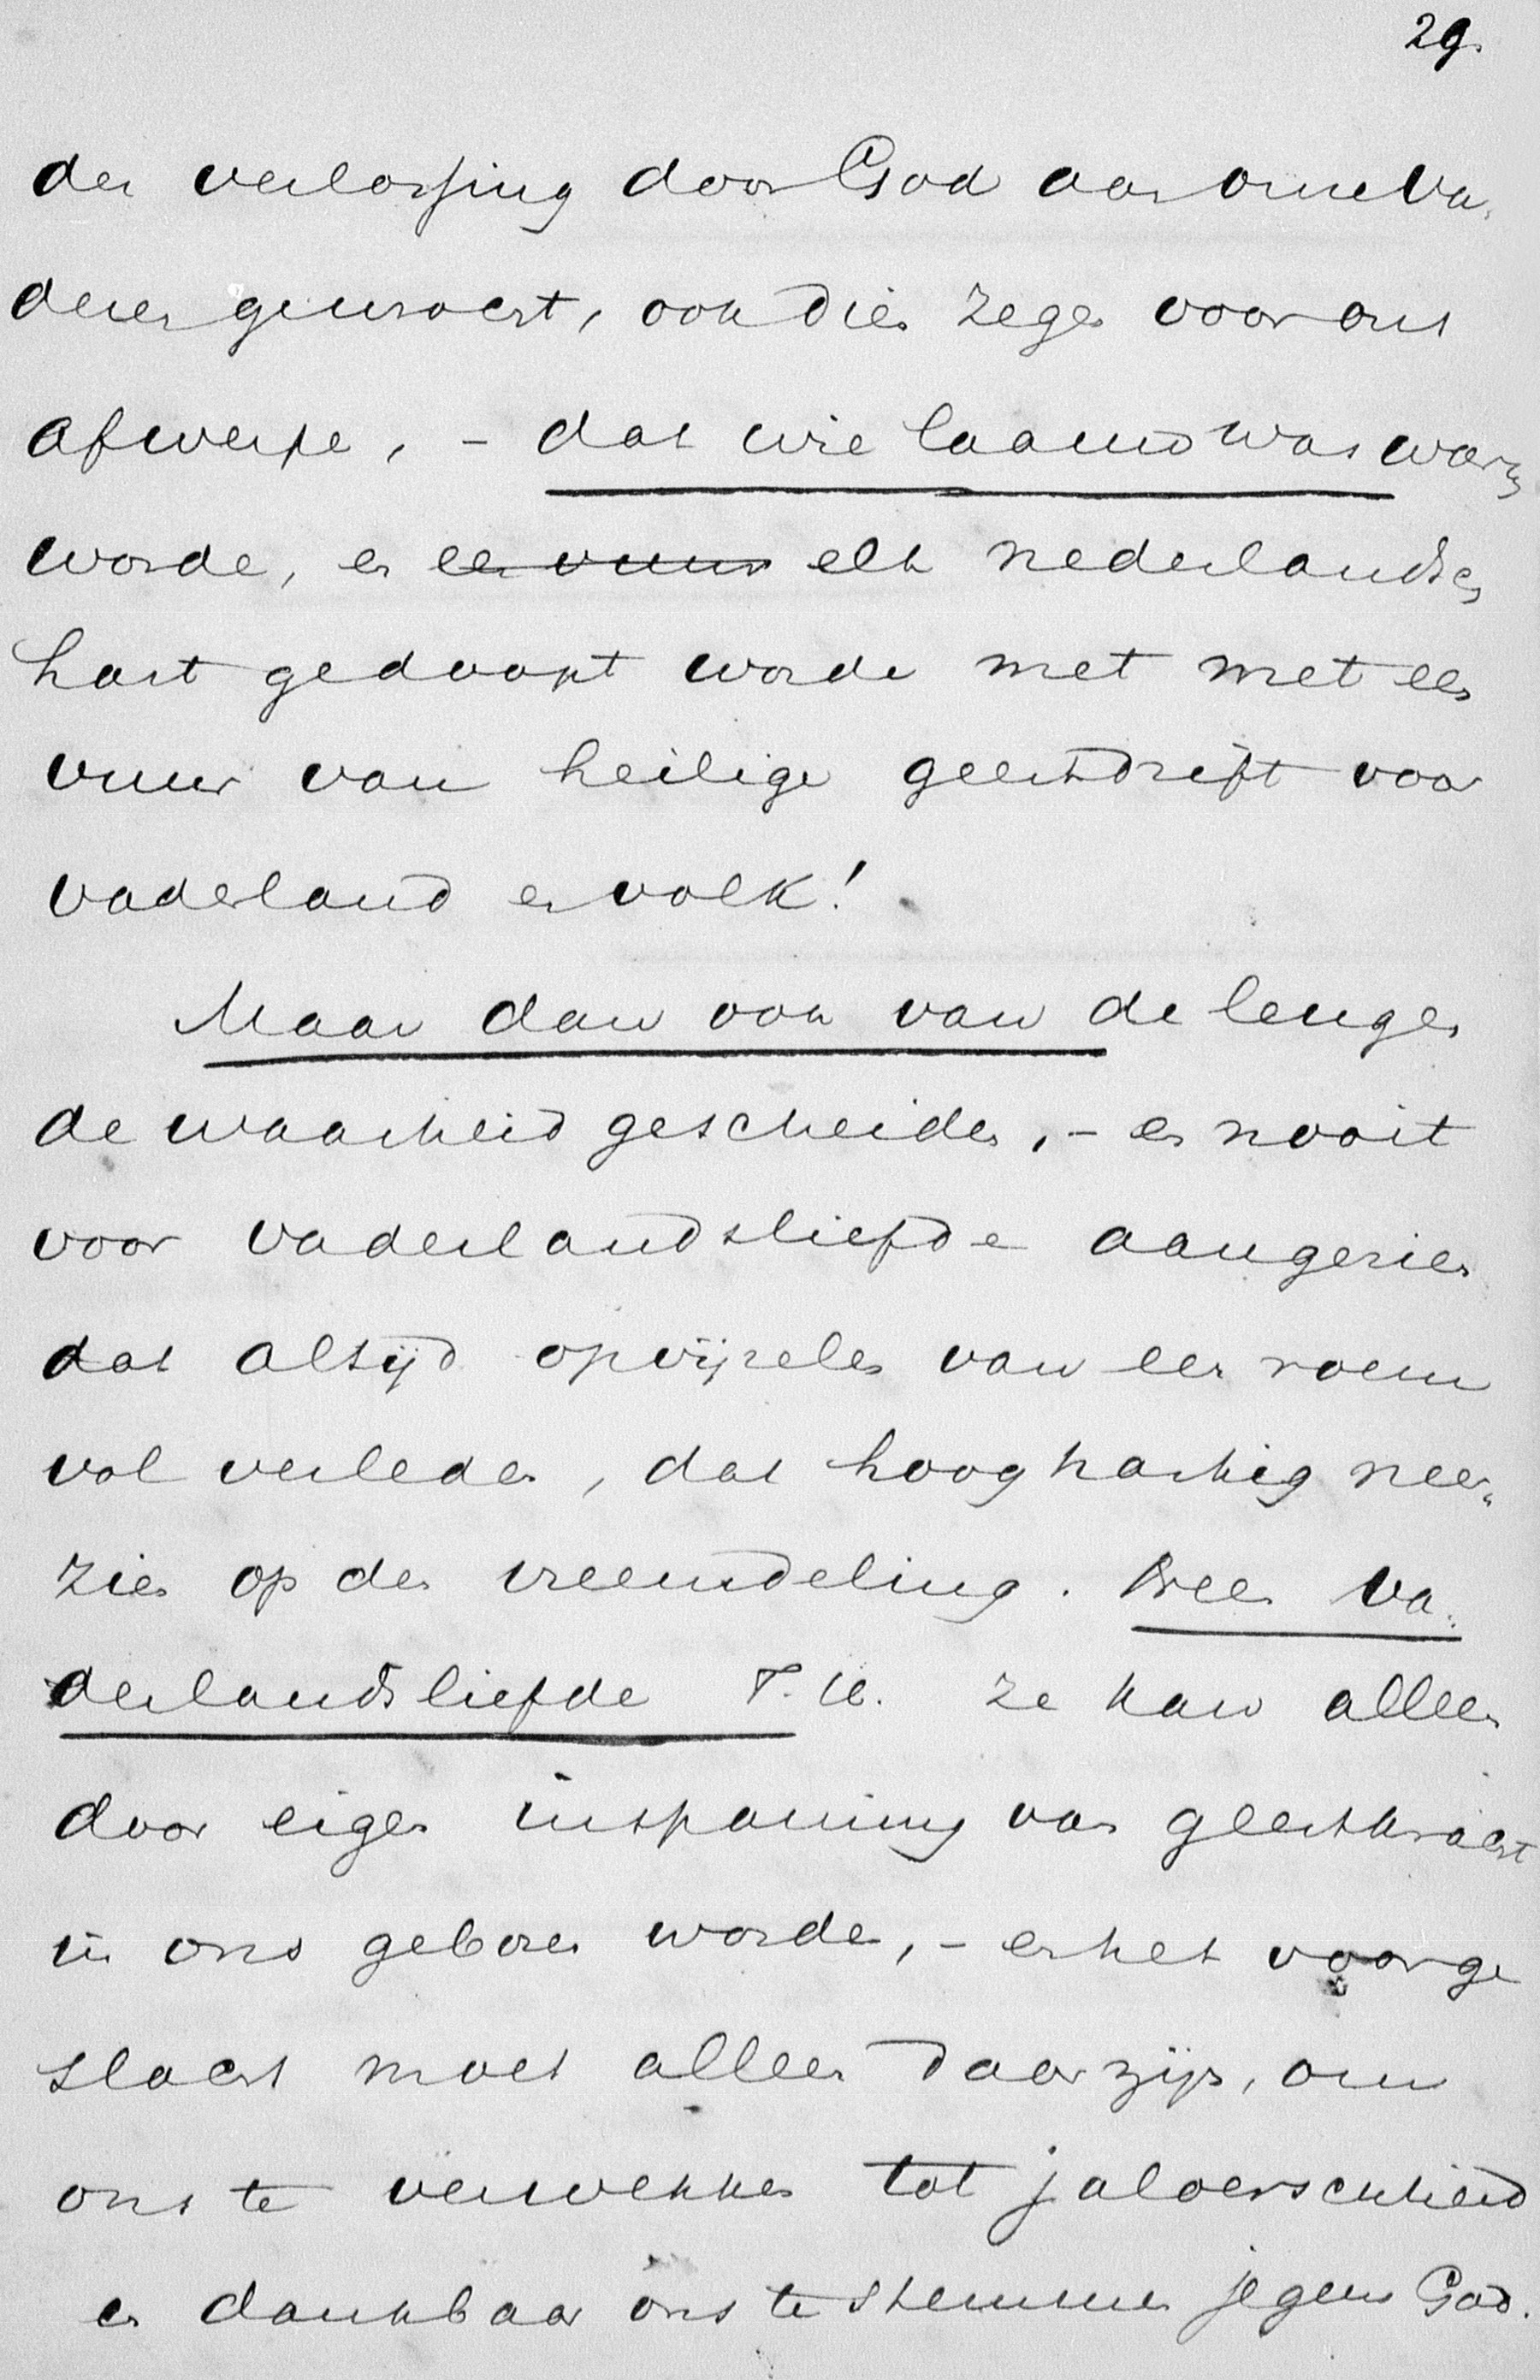 29.
der verlossing door God aan onze va-
deren gewrocht, ook dien zegen voor ons
afwerpe, - dat wie laauw was warm
worde, en een vuur elk nederlandsch
hart gedoopt worde met met een
vuur van heilige geestdrift voor
vaderland en volk!
Maar dan ook van de leugen
de waarheid gescheiden, - en nooit
voor vaderlandsliefde aangezien
dat altijd opvijzelen van een roem
vol verleden, dat hooghartig neer-
zien op den vreemdeling. Neen va-
derlandsliefde T. H. ze kan alleen
door eigen inspanning van geestkracht
in ons geboren worden, - en het voorge
slacht moet alleen daar zijn, om
ons te verwekken tot jaloerschheid
en dankbaar ons te stemmen jegens God.